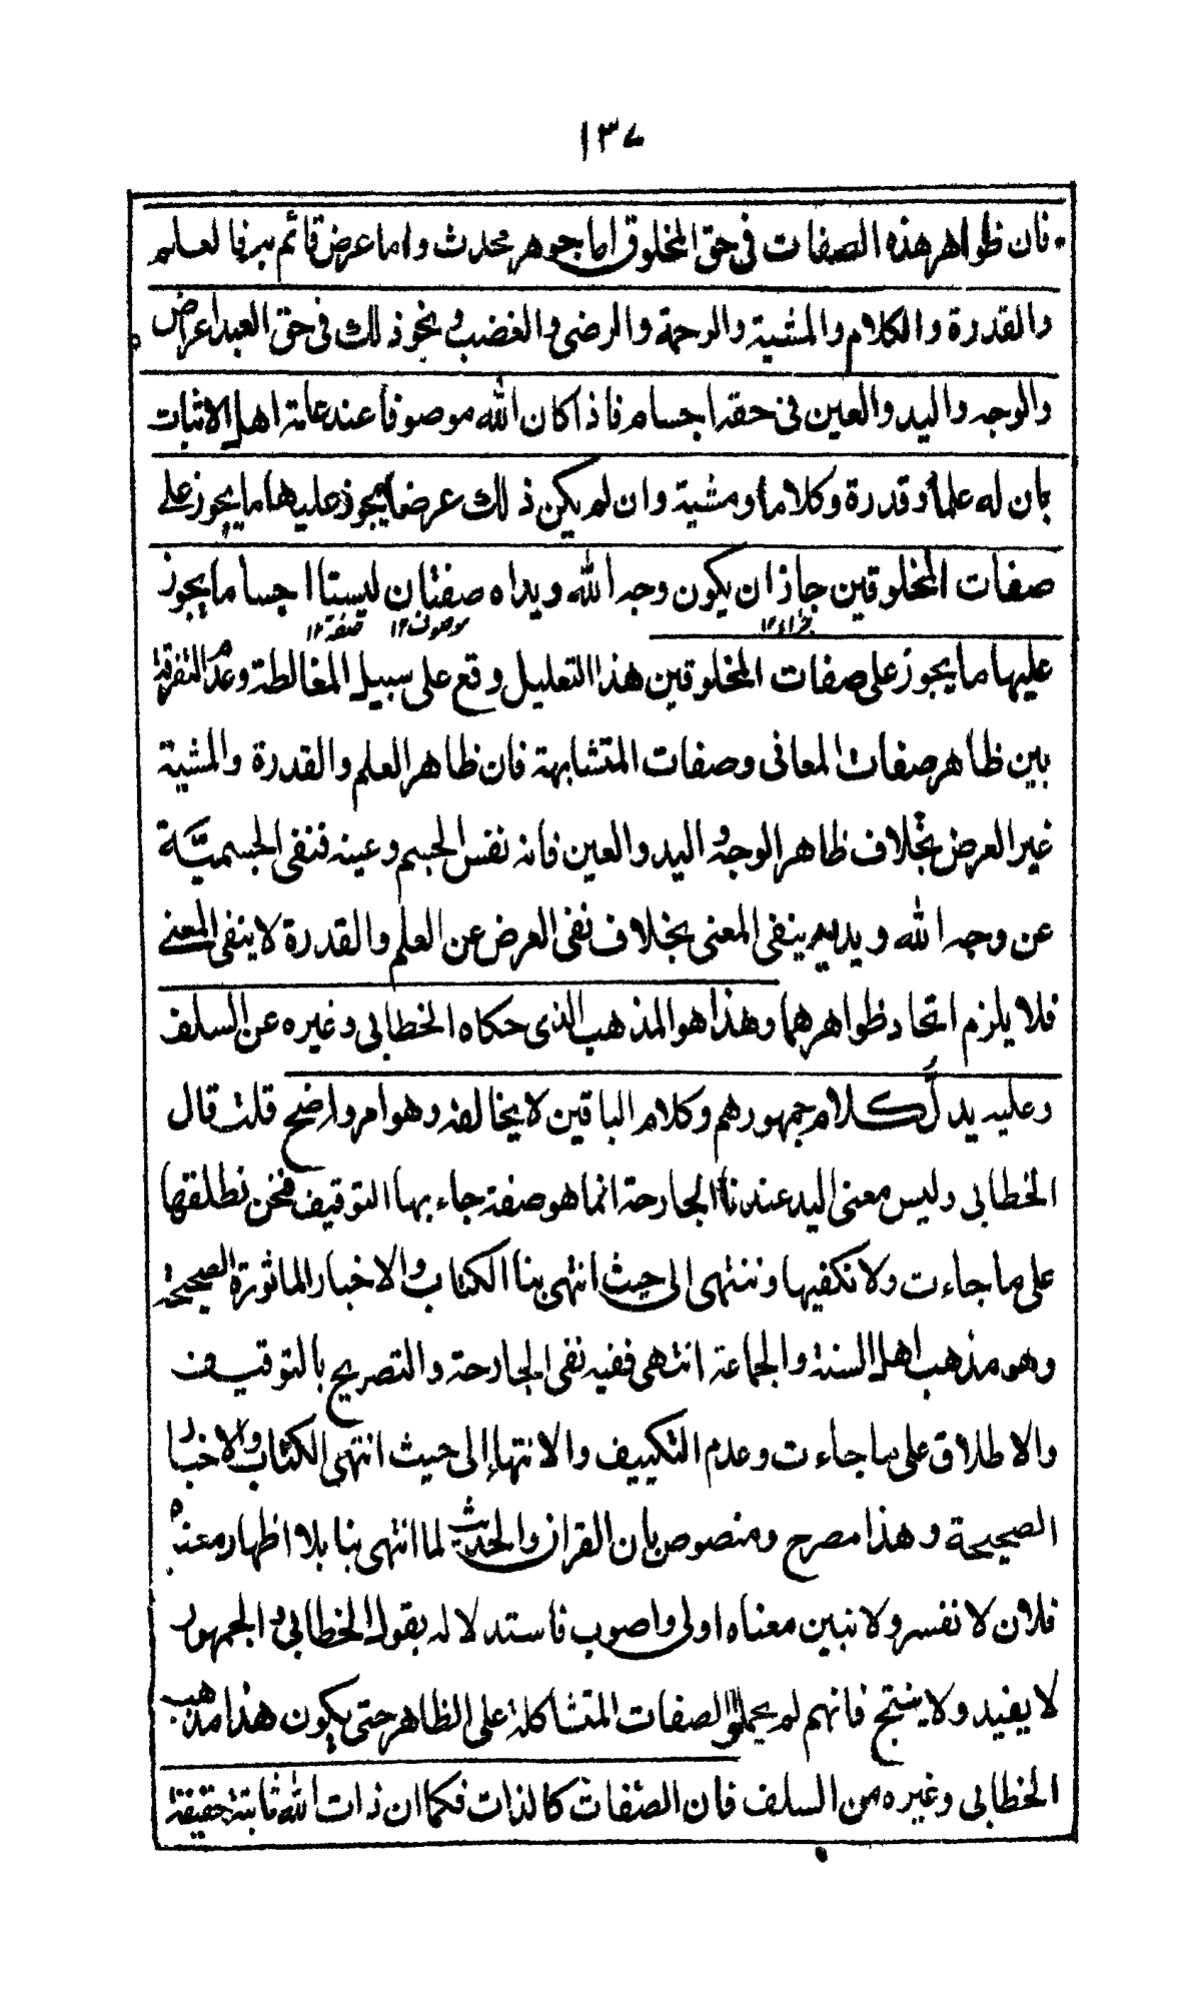 ١٣٧
فان ظواهر هذه الصفات فى حق المخلوق اما جوهر محدث واما عرض قائم به فالعلم
والقدرة والكلام والمشية والرحمة والرضى والغضب ونحو ذلك فى حق العبد اعراض
والوجه واليد والعين فى حقه اجسام فاذا كان الله موصوفا عند عامة اهل الاثبات
بان له علما وقدرة وكلاما ومشية وان لم يكن ذلك عرضا يجوز عليها ما يجوز على
صفات المخلوقين جاز ان يكون وجه الله ويداه صفتان ليستا اجساما يجوز
جزاء ١٢ موصوف ١٢ صفة ١٢
عليها ما يجوز على صفات المخلوقين هذا التعليل وقع على سبيل المغالطة وعدم التفرقة
بين ظاهر صفات المعانى وصفات المتشابهة فان ظاهر العلم والقدرة والمشية
غير العرض بخلاف ظاهر الوجه واليد والعين فانه نفس الجسم وعينه فنفى الجسميَّة
عن وجه الله ويديه ينفى المعنى بخلاف نفى العرض عن العلم والقدرة لا ينفى المعنى
فلا يلزم اتحاد ظواهرهما وهذا هو المذهب الذى حكاه الخطابى وغيره عن السلف
وعليه يدلُّ كلام جمهورهم وكلام الباقين لا يخالفه وهو امر واضح قلت قال
الخطابى وليس معنى اليد عندنا الجارحة انما هو صفة جاء بها التوقيف فنحن نطلقها
على ما جاءت ولا نكفيها وننتهى الى حيث انتهى بنا الكتاب والاخبار الماثورة الصحيحة
وهو مذهب اهل السنة والجماعة انتهى ففيه نفى الجارحة والتصريح بالتوقيف
والاطلاق على ما جاءت وعدم التكييف والانتهاء إلى حيث انتهى الكتاب والاخبار
الصحيحة وهذا مصرح ومنصوص بان القران والحديث لما انتهى بنا بلا اظهار معناه
فلان لا نفسر ولا نبين معناه اولى واصوب فاستدلاله بقول الخطابى والجمهور
لا يفيد ولا ينتج فانهم لم يحملوا الصفات المتشاكلة على الظاهر حتى يكون هذا مذهب
الخطابى وغيره من السلف فان الصفات كالذات فكما ان ذات الله ثابتة حقيقة